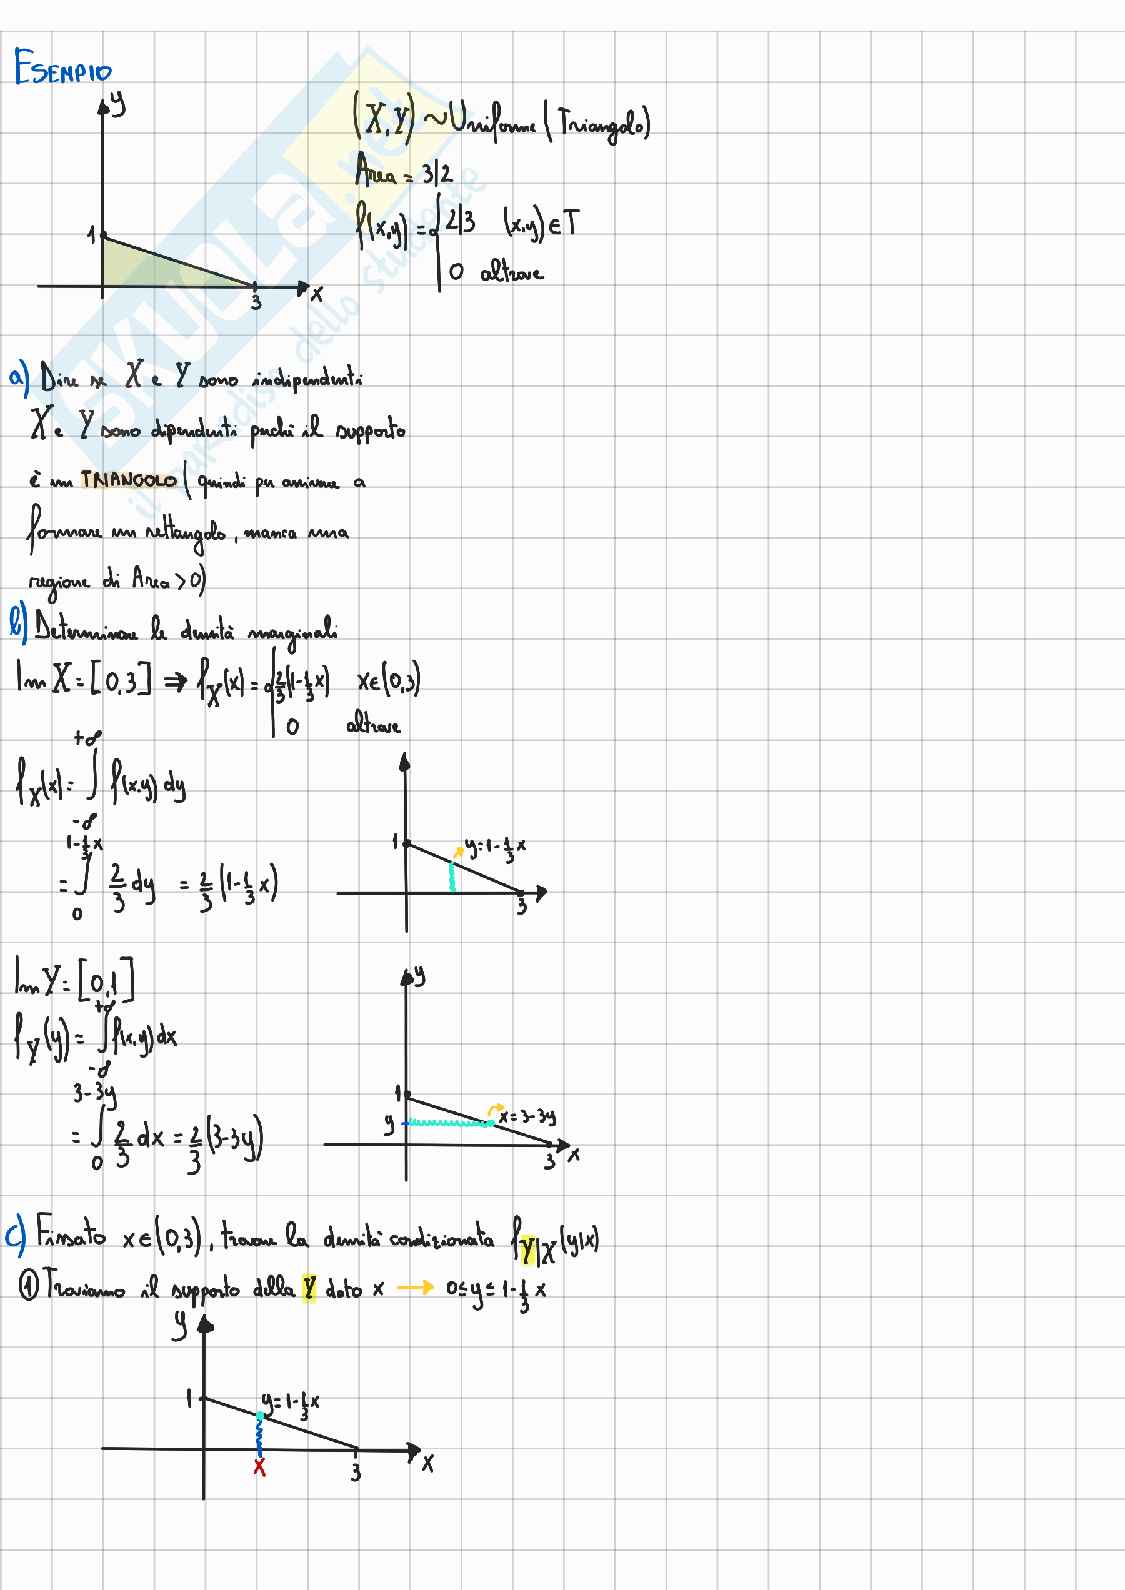 ESEMPIO
y
1
3
x
(X,Y) ~ Uniforme (Triangolo)
Area = 3/2
f(x,y) = { 2/3 (x,y) ∈ T
0 altrove
SKUOLA.net
il paradiso dello studente
a) Dire se X e Y sono indipendenti
X e Y sono dipendenti perché il supporto
è un TRIANGOLO ( quindi per arrivare a
formare un rettangolo, manca una
regione di Area > 0)
b) Determinare le densità marginali
Im X = [0,3] ⇒ f_X(x) = { 2/3 (1-1/3 x) x ∈ (0,3)
0 altrove
f_X(x) = ∫_{-∞}^{+∞} f(x,y) dy
= ∫_0^{1-1/3 x} 2/3 dy = 2/3 (1-1/3 x)
1
y=1-1/3 x
3
Im Y = [0,1]
f_Y(y) = ∫_{-∞}^{+∞} f(x,y) dx
= ∫_0^{3-3y} 2/3 dx = 2/3 (3-3y)
y
1
y
x=3-3y
3
x
c) Fissato x ∈ (0,3), trovare la densità condizionata f_{Y|X}(y|x)
① Troviamo il supporto della Y dato x → 0≤y≤1-1/3 x
y
1
y=1-1/3 x
x
3
x